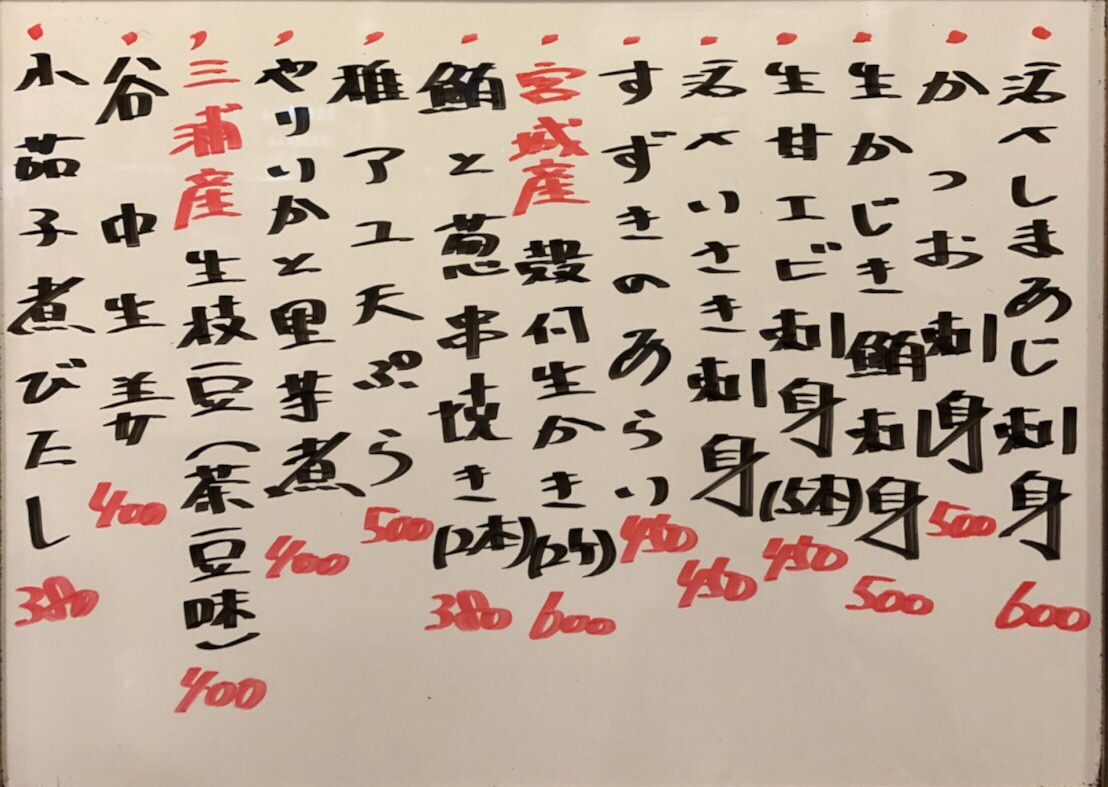 ・活〆しまあじ刺身 600
・かつお刺身 500
・生かじき鮪刺身 500
・生甘エビ刺身(5本) 450
・活〆いさき刺身 450
・すずきのあらい 450
・宮城産 殻付生かき(2ケ) 600
・鮪と葱串焼き(2本) 380
・稚アユ天ぷら 500
・やりいかと里芋煮 400
・三浦産 生枝豆(茶豆味) 400
・谷中生姜 400
・小茄子煮びたし 380